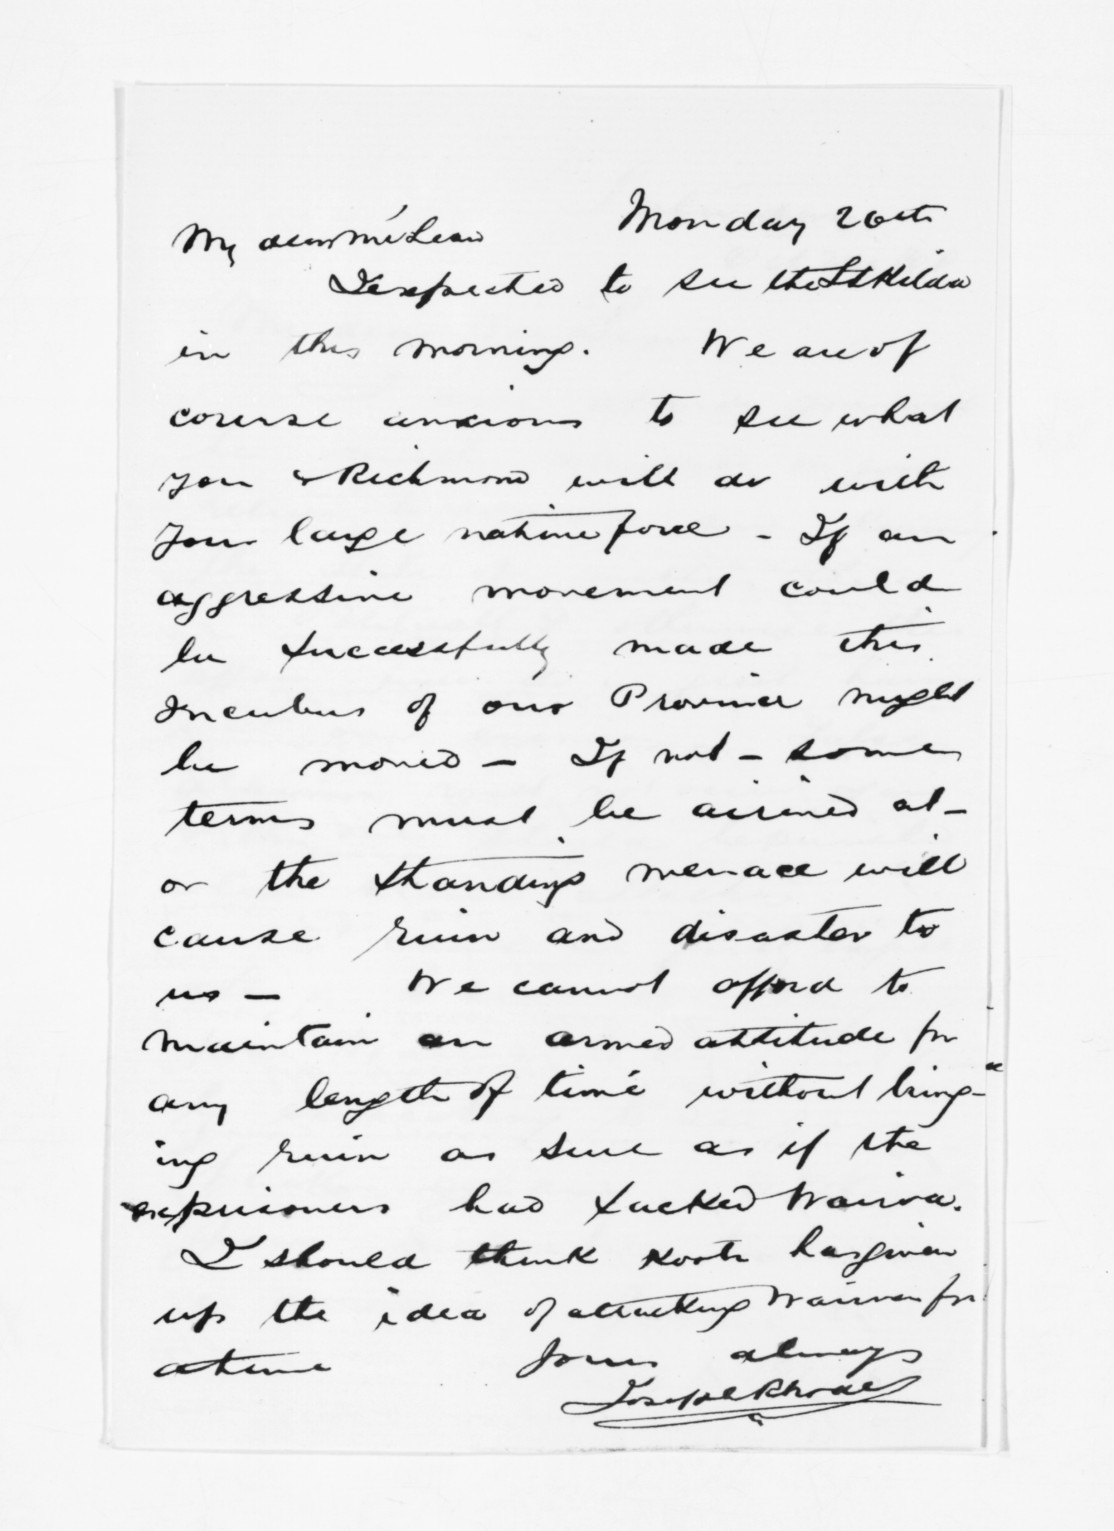 Monday 26th
My dear McLean
I expected to see the St Kilda
in this morning. We are of
course anxious to see what
you & Richmond will do with
your large native force - If an
aggressive movement could
be successfully made this
incubus of our Province might
be moved - If not - some
terms must be arrived at -
or the standing menace will
cause ruin and disaster to
us - We cannot afford to
maintain an armed attitude for
any length of time without bring-
ing ruin as sure as if the
exprisoners had sacked Wairoa.
I should think Kooti has given
up the idea of attacking Wairoa for
a time Yours always
Joseph Rhodes